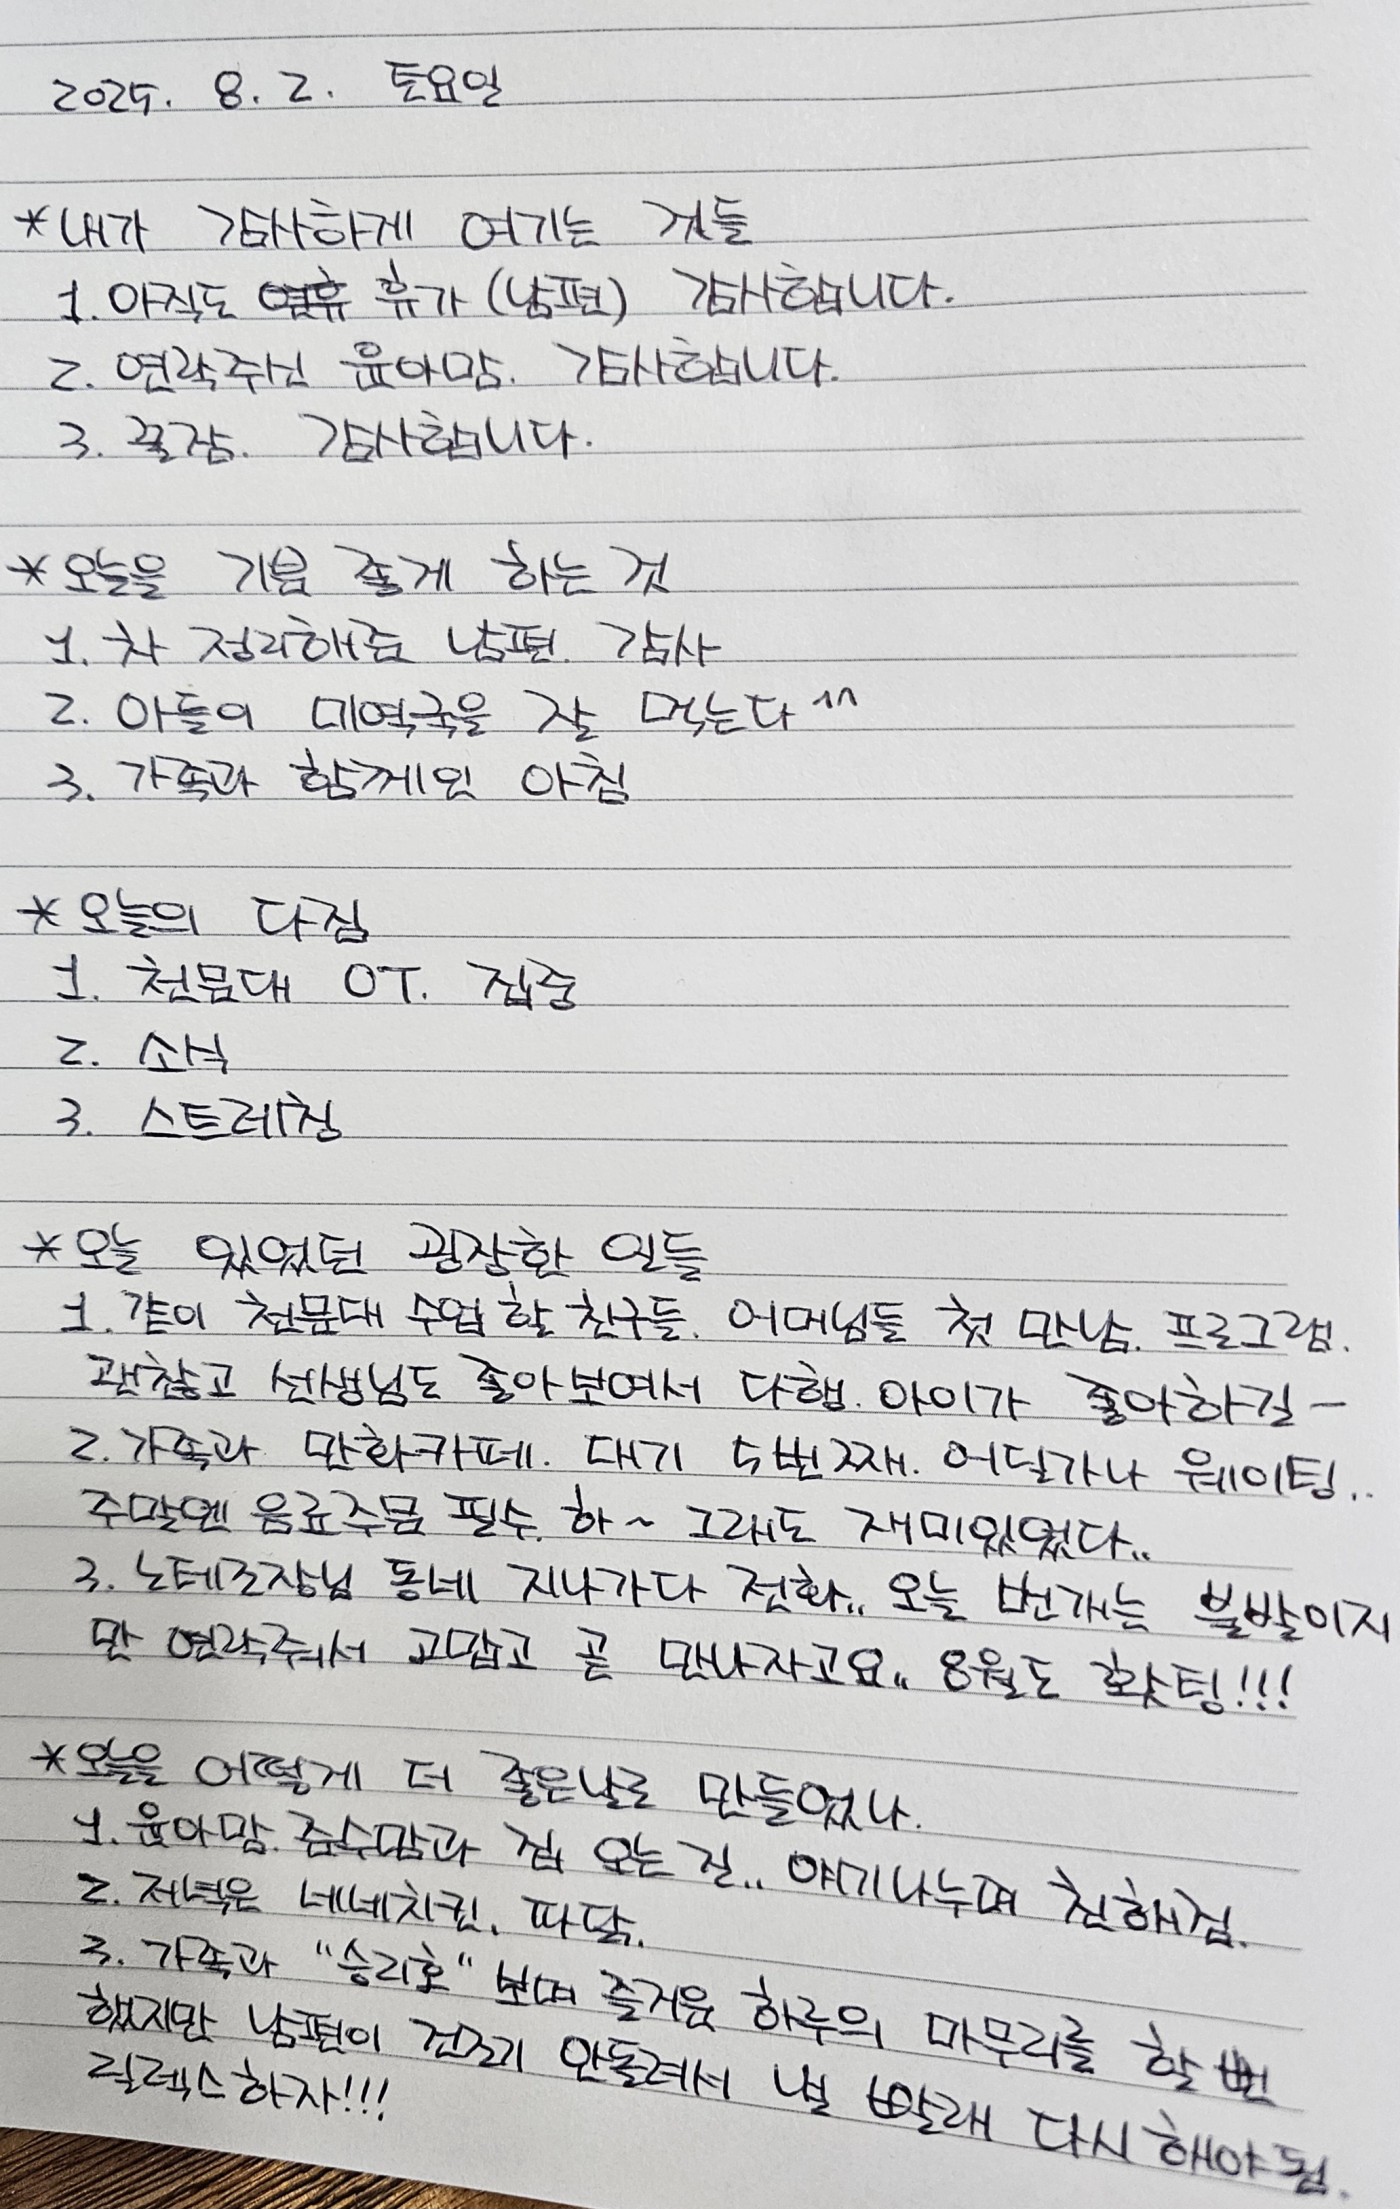 2025. 8. 2. 토요일
*내가 감사하게 여기는 것들
1. 아직도 휴가 (남편) 감사합니다.
2. 연락주신 윤아맘. 감사합니다.
3. 꿀잠. 감사합니다.
*오늘을 기분 좋게 하는 것
1. 차 정리해준 남편. 감사
2. 아들이 미역국을 잘 먹는다^^
3. 가족과 함께인 아침
*오늘의 다짐
1. 천문대 OT. 집중
2. 소식
3. 스트레칭
*오늘 있었던 굉장한 일들
1. 같이 천문대 수업 할 친구들. 어머님들 첫 만남. 프로그램.
괜찮고 선생님도 좋아보여서 다행. 아이가 좋아하길~
2. 가족과 만화카페. 대기 5번째. 어딜가나 웨이팅..
주말엔 음료주문 필수. 하~ 그래도 재미있었다..
3. 노테조장님 동네 지나가다 전화.. 오늘 번개는 불발이지
만 연락주셔서 고맙고 곧 만나자고요.. 8월도 홧팅!!!
*오늘을 어떻게 더 좋은날로 만들었나.
1. 윤아맘. 준수맘과 집 오는 길.. 얘기나누며 친해짐.
2. 저녁은 네네치킨. 파닭.
3. 가족과 "승리호" 보며 즐거운 하루의 마무리를 할 뻔
했지만 남편이 건조기 안돌려서 낼 빨래 다시해야됨.
릴렉스하자!!!